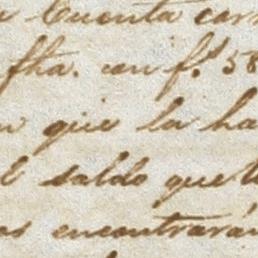 Cuenta
fha. con f.s 58
que la ha
saldo que
encontrará